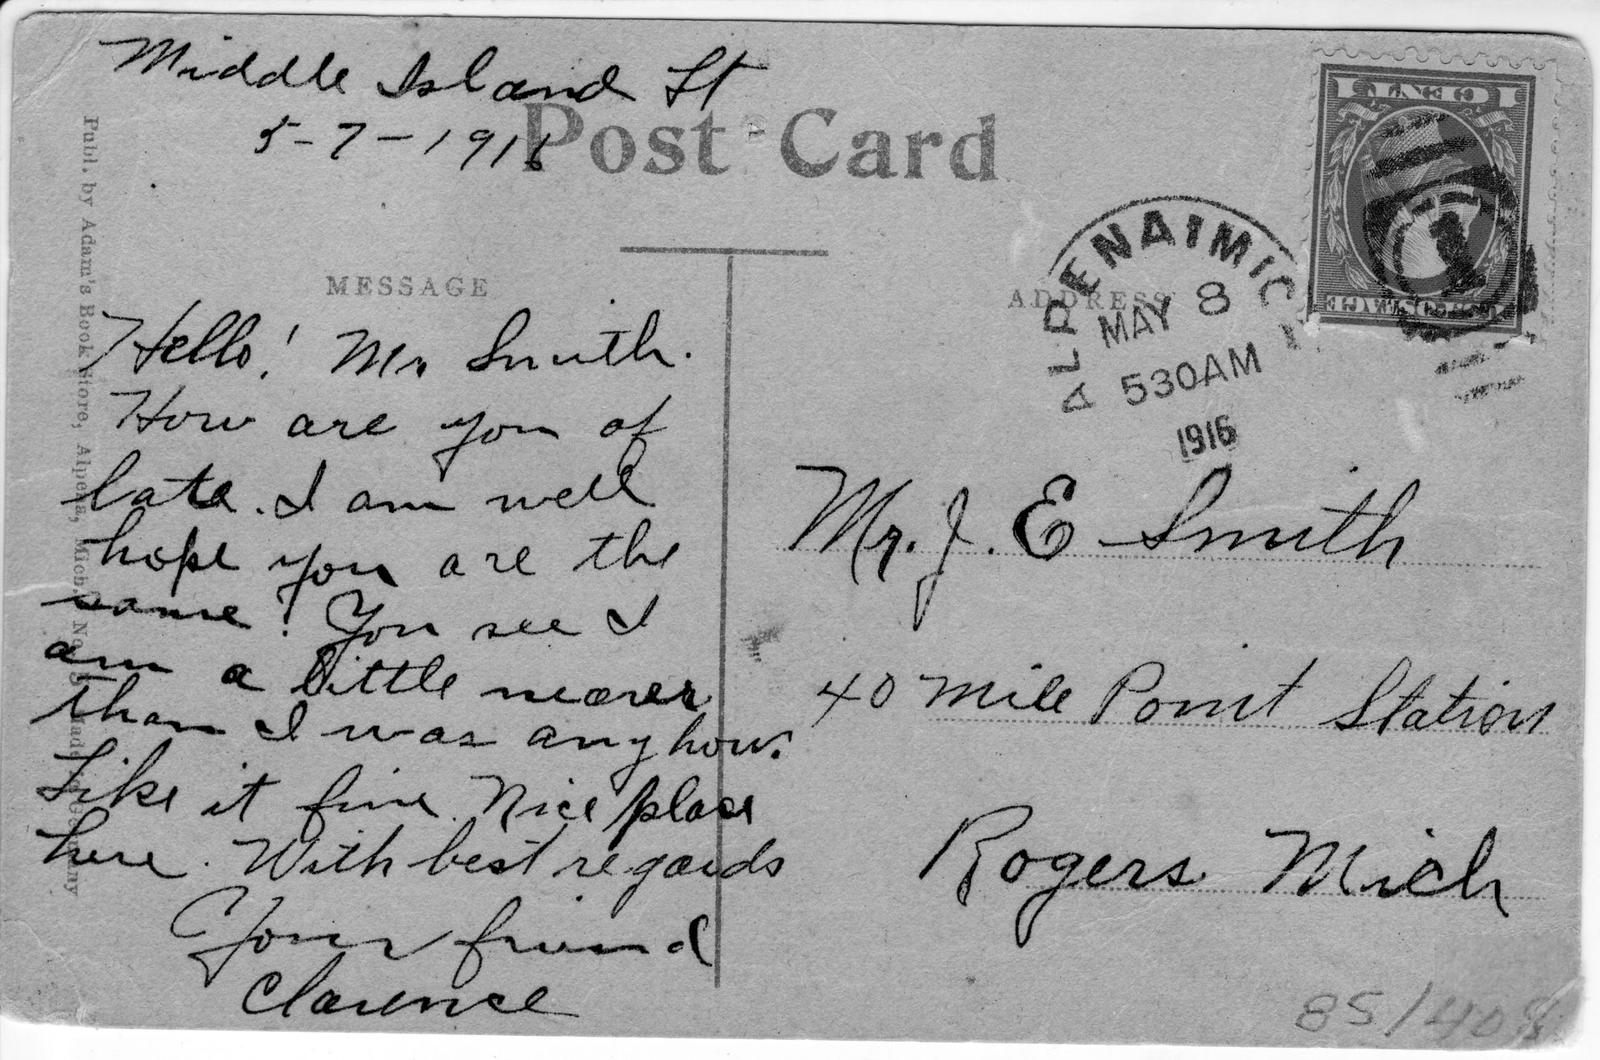 Middle Island St
5-7-1916
Post Card
MESSAGE
Hello! Mr Smith.
How are you of
late. I am well
hope you are the
same! You see I
am a little nearer
than I was anyhow.
Like it fine. Nice place
here. With best regards
Your friend
Clarence
Publ. by Adam's Book Store, Alpena, Mich. No. Made in Germany
ADDRESS
1 CENT 1
U.S. POSTAGE
ALPENA, MICH
MAY 8
530AM
1916
1
Mr. J. E Smith
40 Mile Point Station
Rogers Mich
85/40